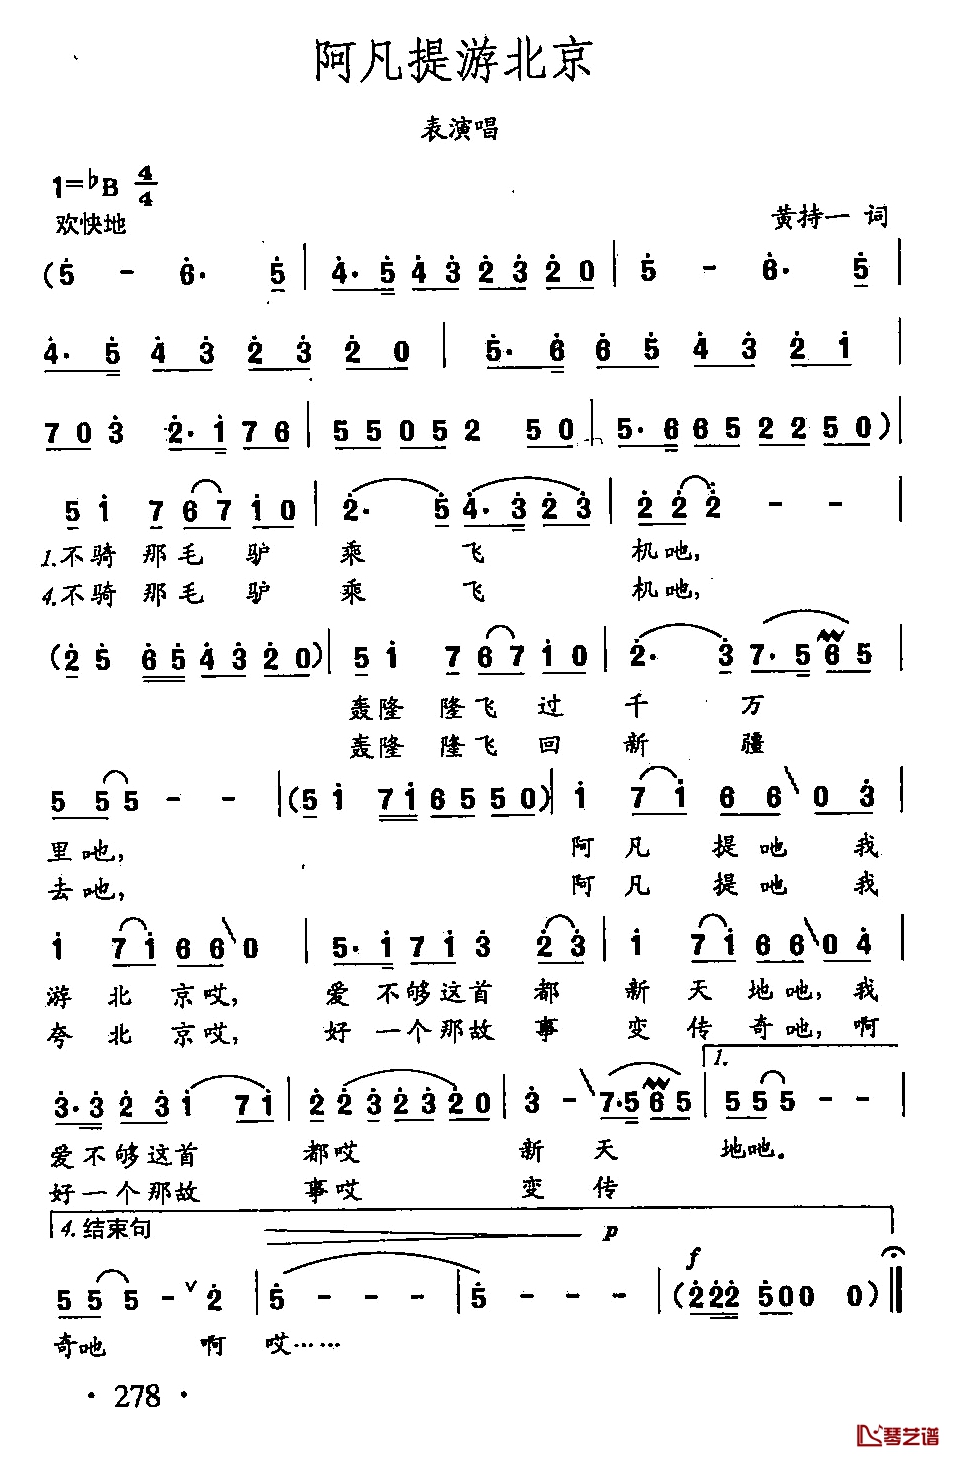 阿凡提游北京
表演唱
1=♭B 4/4
欢快地
黄持一 词
(5 - 6. 5 | 4. 5 4 3 2 3 2 0 | 5 - 6. 5 |
4. 5 4 3 2 3 2 0 | 5. 6 6 5 4 3 2 1 |
7 0 3 2. 1 7 6 | 5 5 0 5 2 5 0 | 5. 6 6 5 2 2 5 0 ) |
5 1 7 6 7 1 0 | 2. 5 4. 3 2 3 | 2 2 2 - - |
1.不骑那毛驴乘飞机吔,
4.不骑那毛驴乘飞机吔,
(2 5 6 5 4 3 2 0 ) | 5 1 7 6 7 1 0 | 2. 3 7. 5 6 5 |
轰隆隆飞过千万
轰隆隆飞回新疆
5 5 5 - - | (5 1 7 1 6 5 5 0 ) | 1 7 1 6 6 0 3 |
里吔, 阿凡提吔我
去吔, 阿凡提吔我
1 7 1 6 6 0 | 5. 1 7 1 3 2 3 | 1 7 1 6 6 0 4 |
游北京哎, 爱不够这首都新天地吔,我
夸北京哎, 好一个那故事变传奇吔,啊
3. 3 2 3 1 7 1 | 2 2 3 2 3 2 0 | 3 - 7. 5 6 5 | 1. 5 5 5 - - |
爱不够这首都哎新天地吔。
好一个那故事哎变传
4. 结束句 p
f
5 5 5 - 2 | 5 - - - | 5 - - - | (2 2 2 5 0 0 0 ) ‖
奇吔啊哎……
· 278 ·
琴艺谱